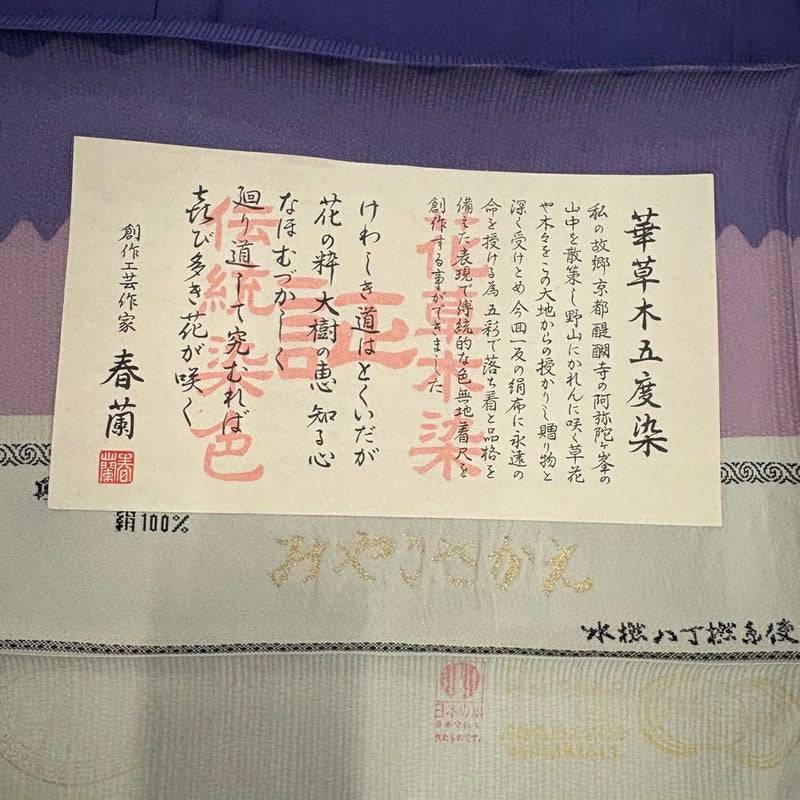 華草木五度染
私の故郷京都醍醐寺の阿弥陀ヶ峯の
山中を散策し野山にかれんに咲く草花
や木々をこの大地からの授かりし贈り物と
深く受けとめ今回一反の絹布に永遠の
命を授ける為五彩で落ち着と品格を
備えた表現で傳統的な色無地着尺を
創作する事ができました
けわしき道はとくいだが
花の粋大樹の恵知る心
なほむづかしく
廻り道して究むれば
喜び多き花が咲く
創作工芸作家 春蘭
春蘭
花草木染
証
伝統染色
絹100%
水撚八丁撚糸使
日本の絹